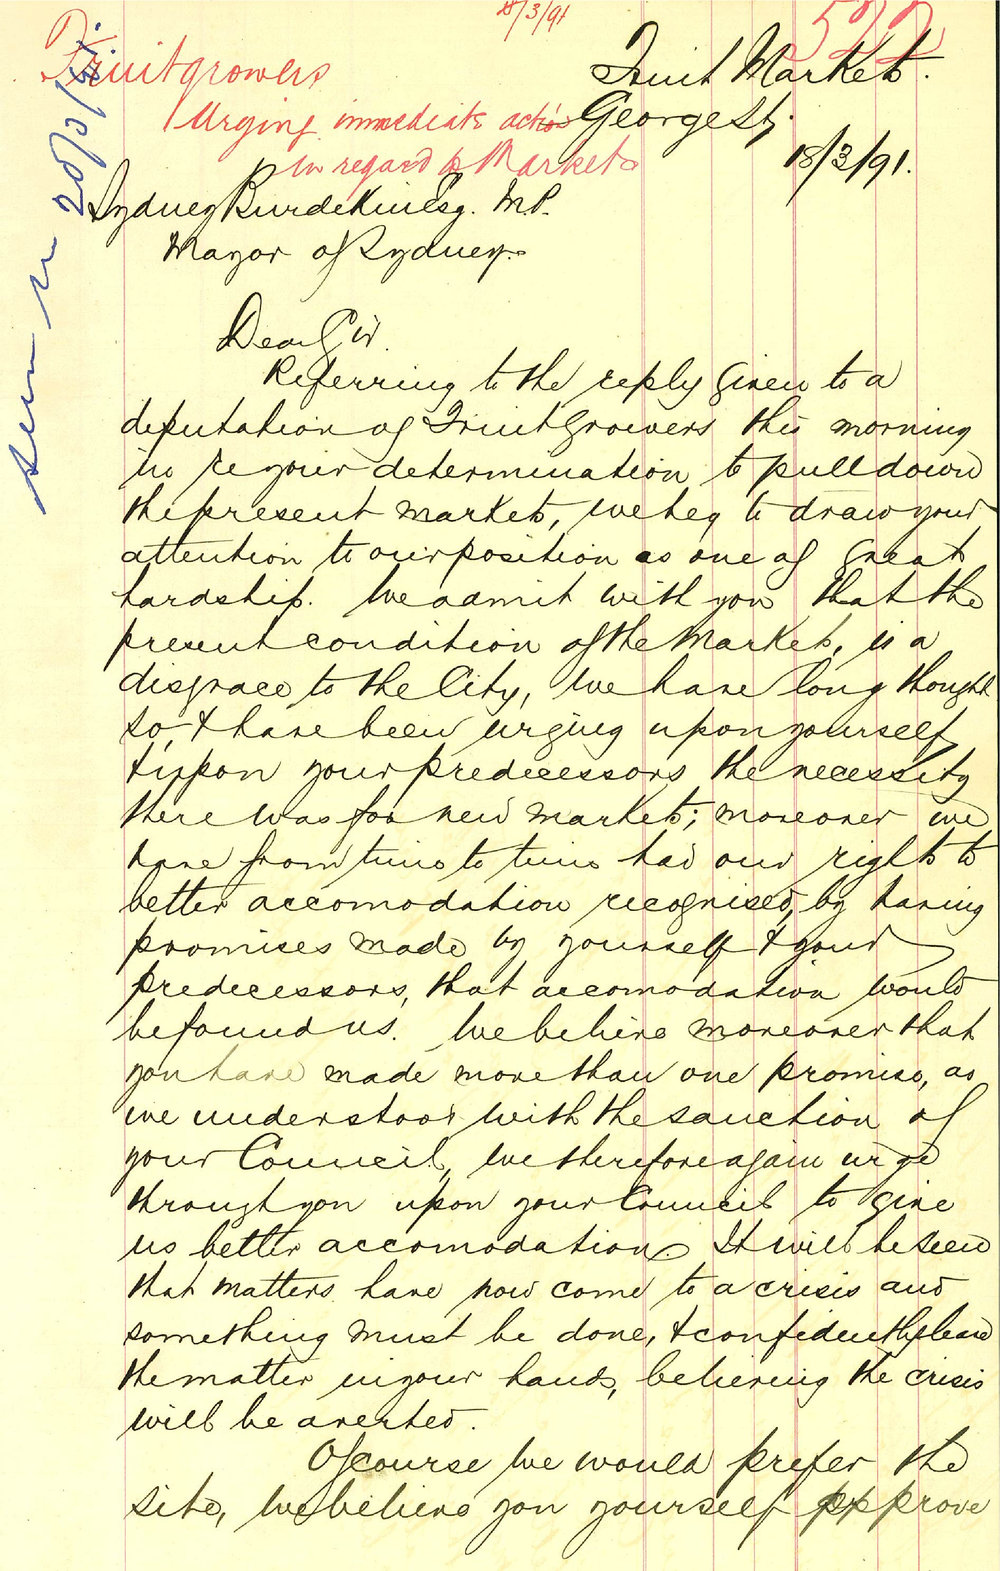 18/3/91
Fruitgrowers
Urging immediate action
in regard to Markets
Fruit Markets.
George St,
18/3/91.
Sydney Burdekin Esq. M.P.
Mayor of Sydney.
Dear Sir.
Referring to the reply given to a
deputation of Fruit Growers this morning
in re your determination to pull down
the present markets, we beg to draw your
attention to our position as one of great
hardship. We admit with you that the
present condition of the Markets, is a
disgrace to the City, We have long thought
so, & have been urging upon yourself
& upon your predecessors the necessity
there was for new markets; moreover we
have from time to time had our rights to
better accomodation recognised, by having
promises made by yourself & your
predecessors, that accomodation would
be found us. We believe moreover that
you have made more than one promise, as
we understood with the sanction of
your Council, We therefore again urge
through you upon your Council to give
us better accomodation. It will be seen
that matters have now come to a crisis and
something must be done, & confidently leave
the matter in your hands, believing the crisis
will be averted.
Of course we would prefer the
site, We believe you yourself approve